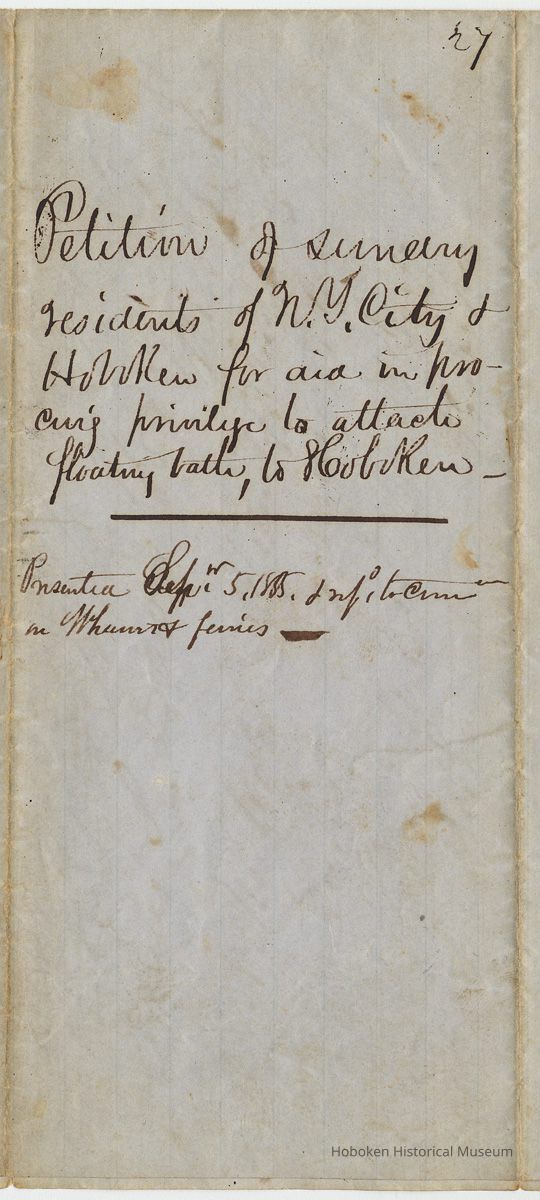 27
Petition of sundry
residents of N.Y. City &
Hoboken for aid in pro-
curig privilege to attach
floating bath, to Hoboken –
Presented Sepr 5, 1855. & refd. to Comm
on Wharves & ferries —
Hoboken Historical Museum